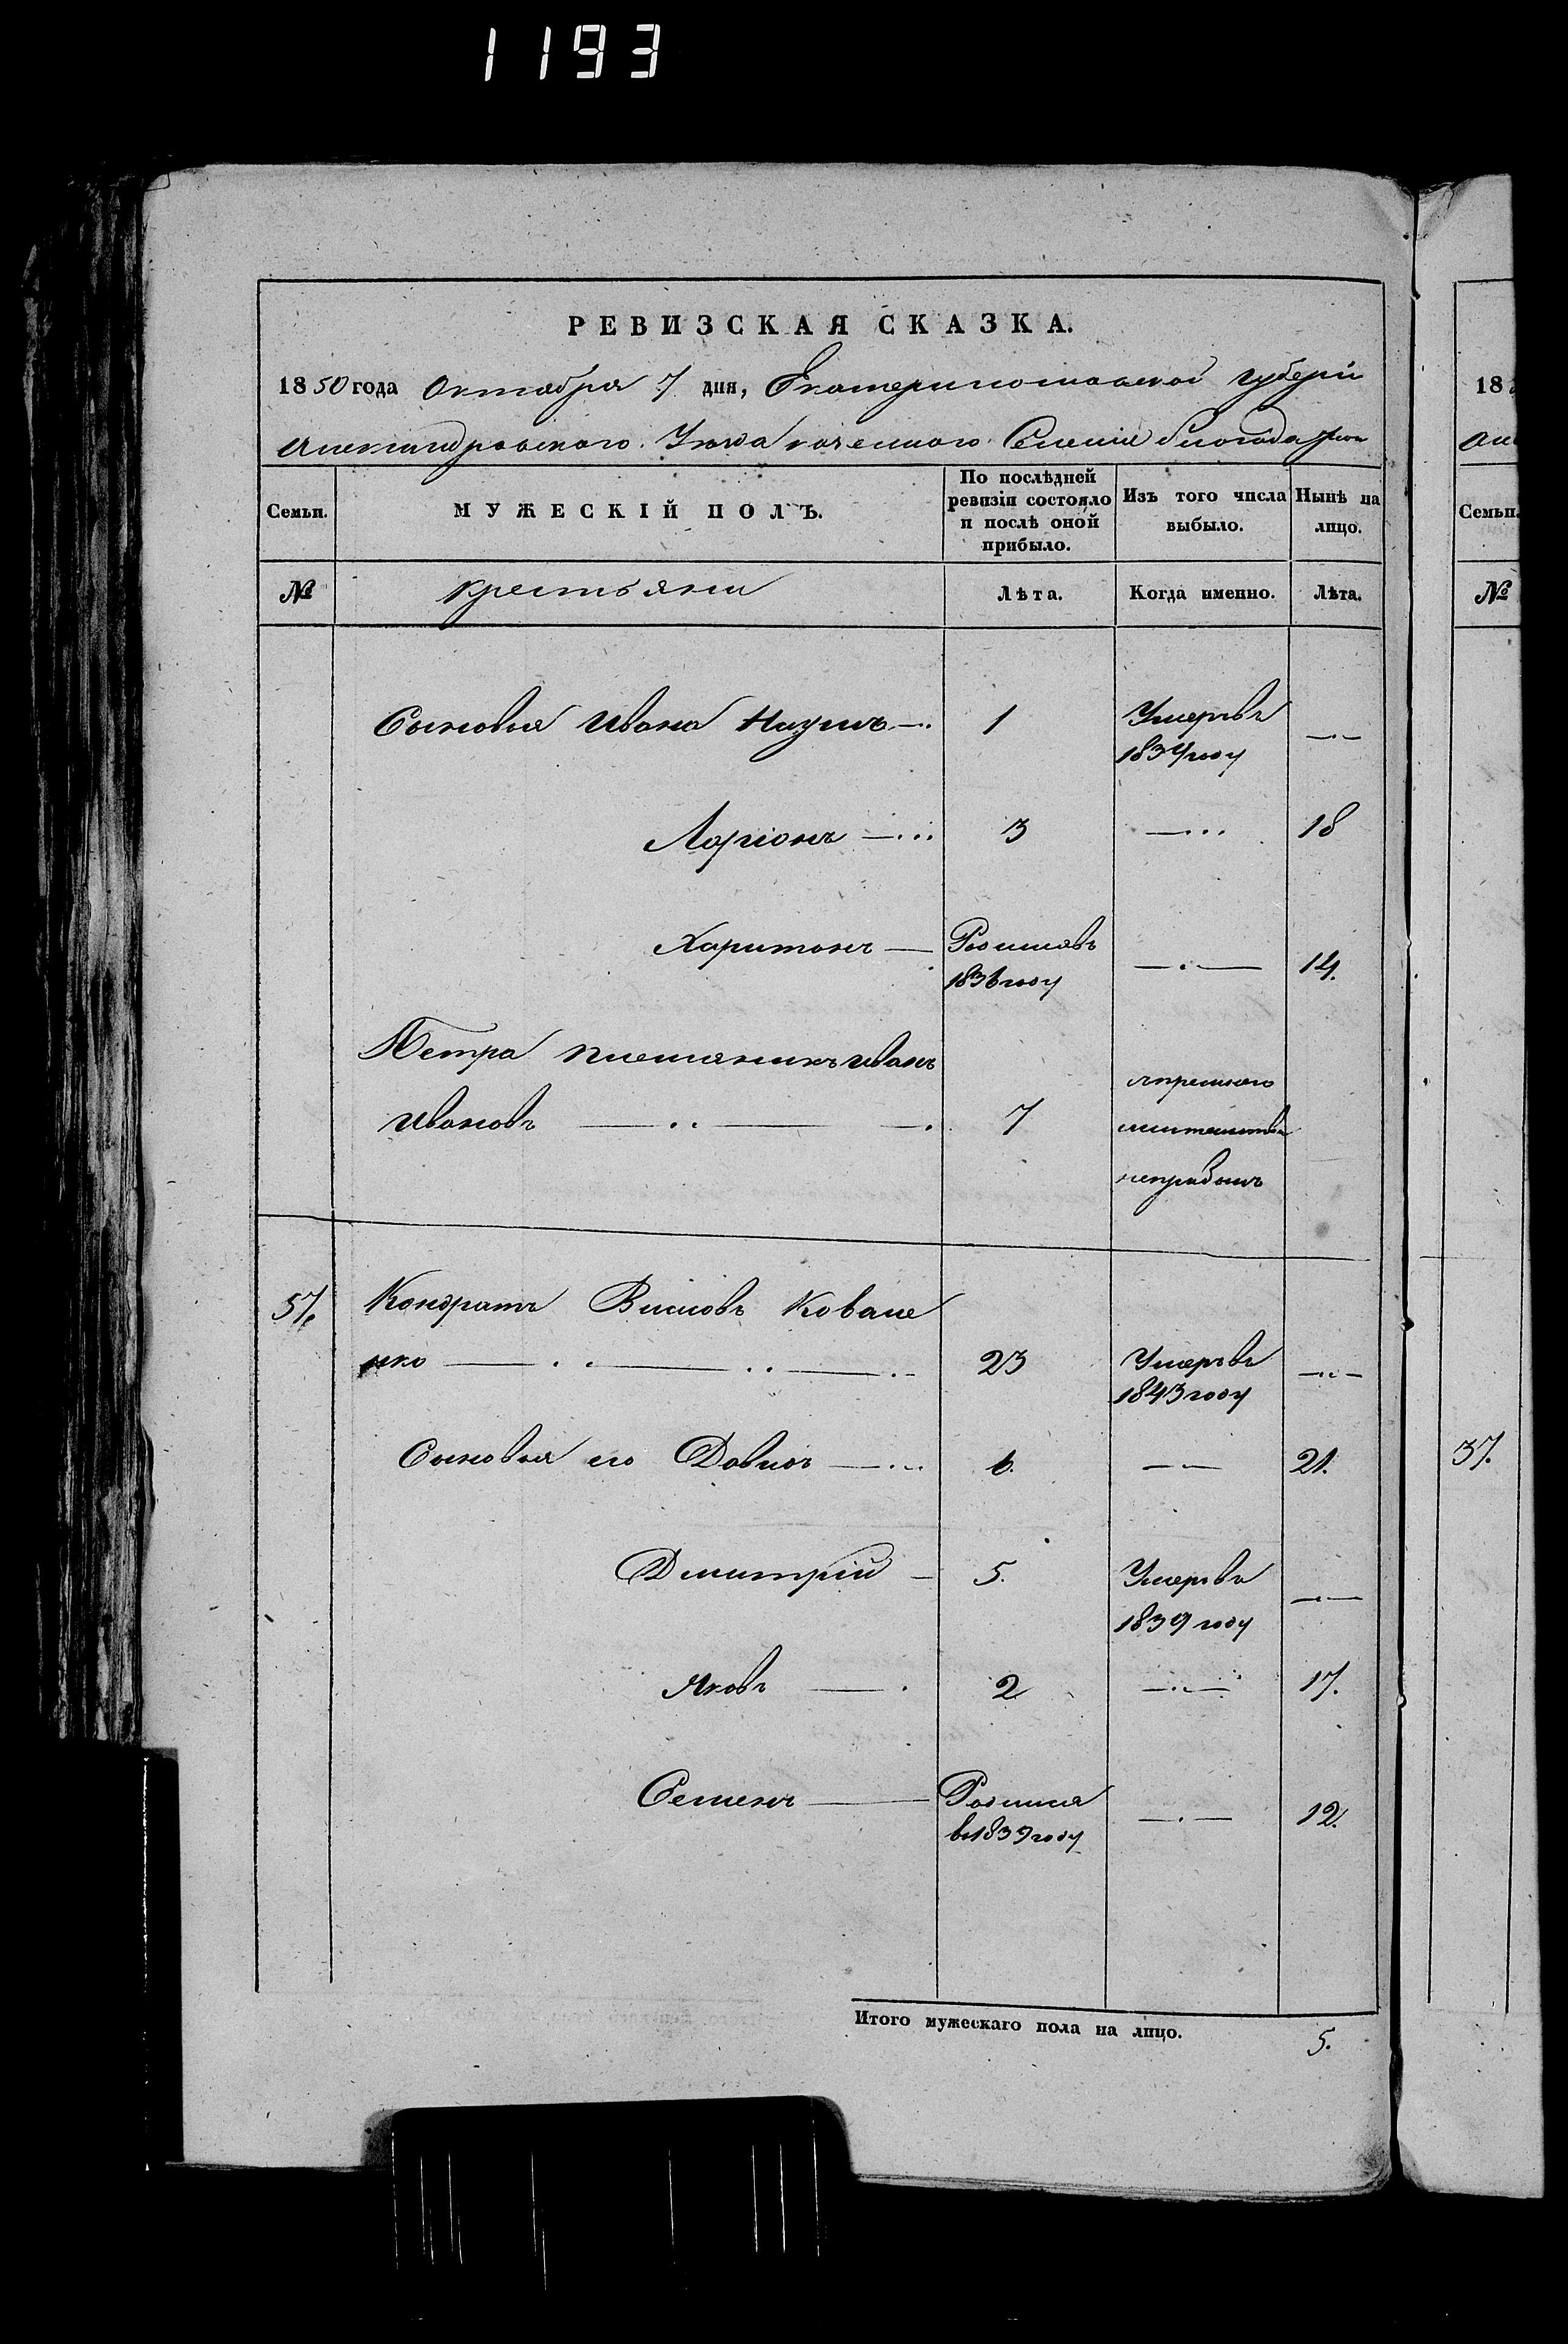 1193
РЕВИЗСКАЯ СКАЗКА.
1850 года Октября 7 дня, Екатеринославской губерніи
Александровскаго Уезда казеннаго Селенія
Семьи.
МУЖЕСКІЙ ПОЛЪ.
По послѣдней
ревизіи состояло
и послѣ оной
прибыло.
Изъ того числа
выбыло.
Нынѣ на
лицо.
№
крестьяни
Лѣта.
Когда именно.
Лѣта.
Сыновья Ивана Наумъ 1 Умеръ въ
1834 году
Ларіонъ 3 18
Харитонъ Родился въ 14.
1836 году
Петра племяникъ Иванъ
Ивановъ 7
57. Кондратъ Ковале
нко 23 Умеръ въ
1843 году
Сыновья его Давидъ 6. 21.
Дмитрій 5. Умеръ въ
1839 году
Яковъ 2 17.
Семенъ Родился 12.
в 1839 году
Итого мужескаго пола на лицо. 5.
18
Семьи.
№
37.